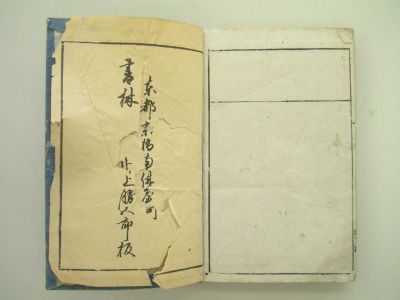 東都京橋南伝馬町
書林 井上勝次郎板